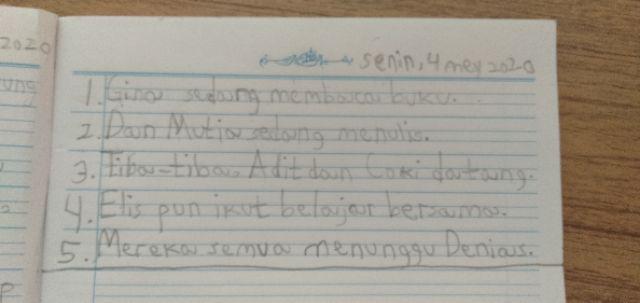 2020
ung
senin, 4 mey 2020
1. Gina sedang membaca buku.
2. Dan Mutia sedang menulis.
3. Tiba-tiba, Adit dan Coki datang.
4. Elis pun ikut belajar bersama.
5. Mereka semua menunggu Denias.
P